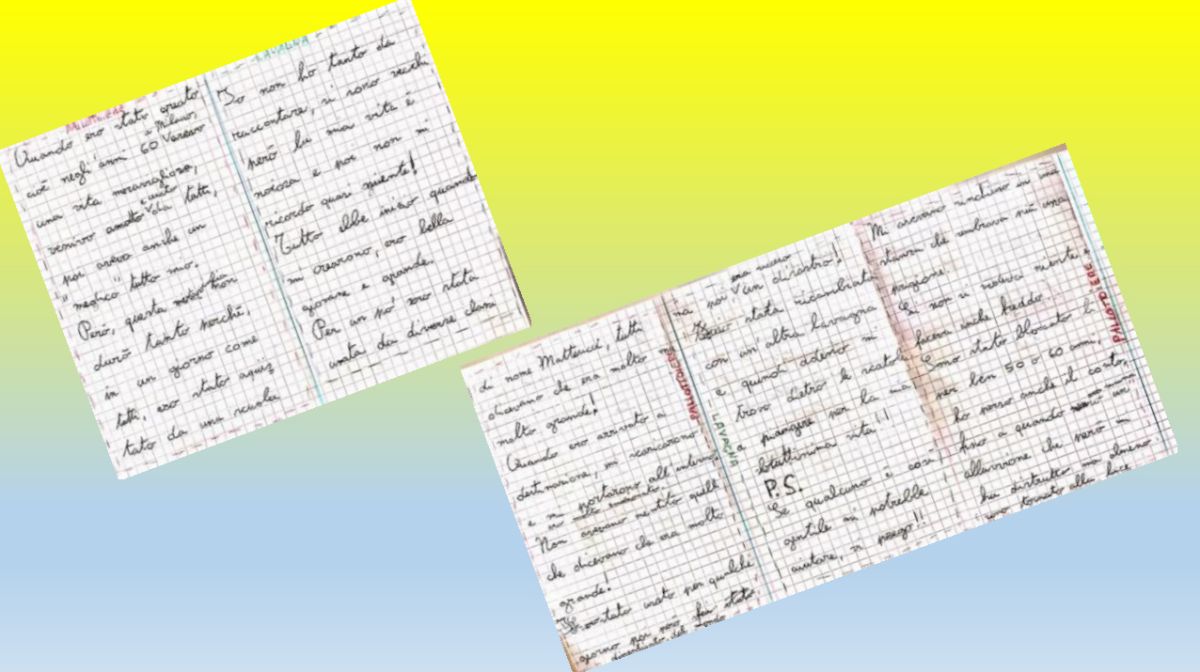 MILOTTIERE
Quando ero stato creato,
cioè negli anni 60 a Milano,
vivevo
una vita meravigliosa,
venivo amato e usato da tutti,
poi avevo anche un
"medico" tutto mio.
Però, questa non
durò tanto perché,
in un giorno come
tutti, ero stato acquis
tato da una scuola
LAVAGNA
Io non ho tanto da
raccontare, si sono vecchi
però la mia vita è
noiosa e poi non mi
ricordo quasi niente!
Tutto ebbe inizio quando
mi crearono, ero bella
giovane e grande.
Per un po' ero stata
usata da diverse classi
di nome Matteucci, tutti
dicevano che era molto
molto grande!
Quando ero arrivato a
destinazione, mi scaricarono
e mi portarono all'interno
Non avevano mentito quelli
che dicevano che era molto
grande!
Ero stato usato per qualche
giorno poi però fui stato
dimenticato dal mondo
PALLOTTOLIERE
LAVAGNA
ma poi era successo un disastro!
Sono stata ricambiata
con un'altra lavagna
e quindi adesso mi
trovo dietro le scatole
a piangere per la mia
bruttissima vita!!
P.S.
Se qualcuno è così
gentile mi potrebbe
aiutare, vi prego!!
PALLOTTOLIERE
Mi avevano rinchiuso in una
stanza che sembrava più una
prigione.
Lì non si vedeva niente e
faceva anche freddo.
Sono stato bloccato lì
per ben 50 o 60 anni,
ho perso anche il conto,
fino a quando un'
alluvione che però mi
ha distrutto ma almeno
sono tornato alla luce